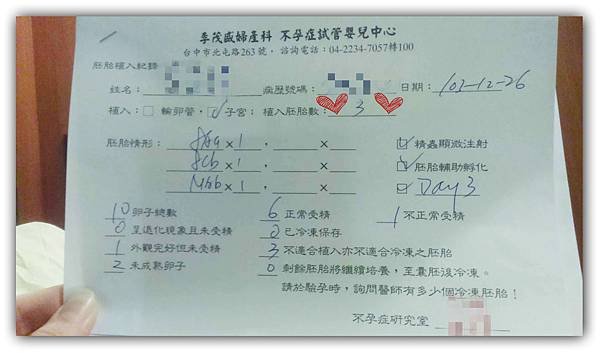 李茂盛婦產科 不孕症試管嬰兒中心
台中市北屯路263號，諮詢電話：04-2234-7057轉100
胚胎植入紀錄
姓名： 病歷號碼： 日期：102-12-26
植入：□ 輸卵管，☑ 子宮； 植入胚胎數： 3
胚胎情形： ×1， × ☑ 精蟲顯微注射
8cb ×1， × ☑ 胚胎輔助孵化
Mbb ×1， × ☑ Day 3
10 卵子總數 6 正常受精 1 不正常受精
0 呈退化現象且未受精 0 已冷凍保存
1 外觀完好但未受精 3 不適合植入亦不適合冷凍之胚胎
2 未成熟卵子 0 剩餘胚胎將繼續培養，至囊胚後冷凍。
請於驗孕時，詢問醫師有多少個冷凍胚胎！
不孕症研究室